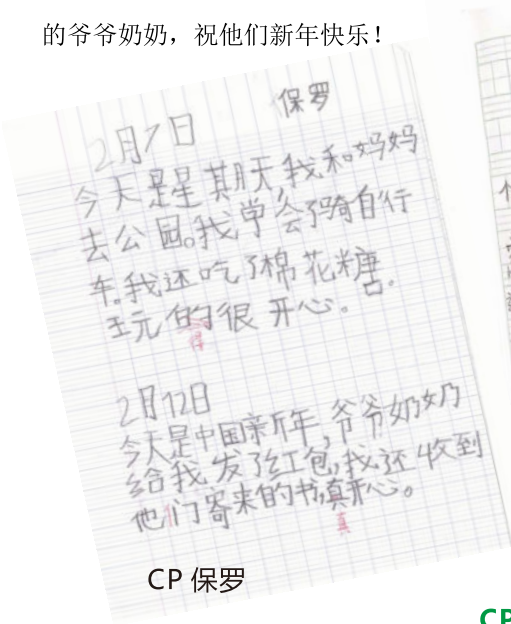 的爷爷奶奶，祝他们新年快乐！
保罗
2月7日
今天是星期天,我和妈妈
去公园。我学会了骑自行
车。我还吃了棉花糖.
玩的很开心。
得
2月12日
今天是中国新年,爷爷奶奶
给我发了红包,我还收到
他们寄来的书,真开心。
真
CP 保罗
CP